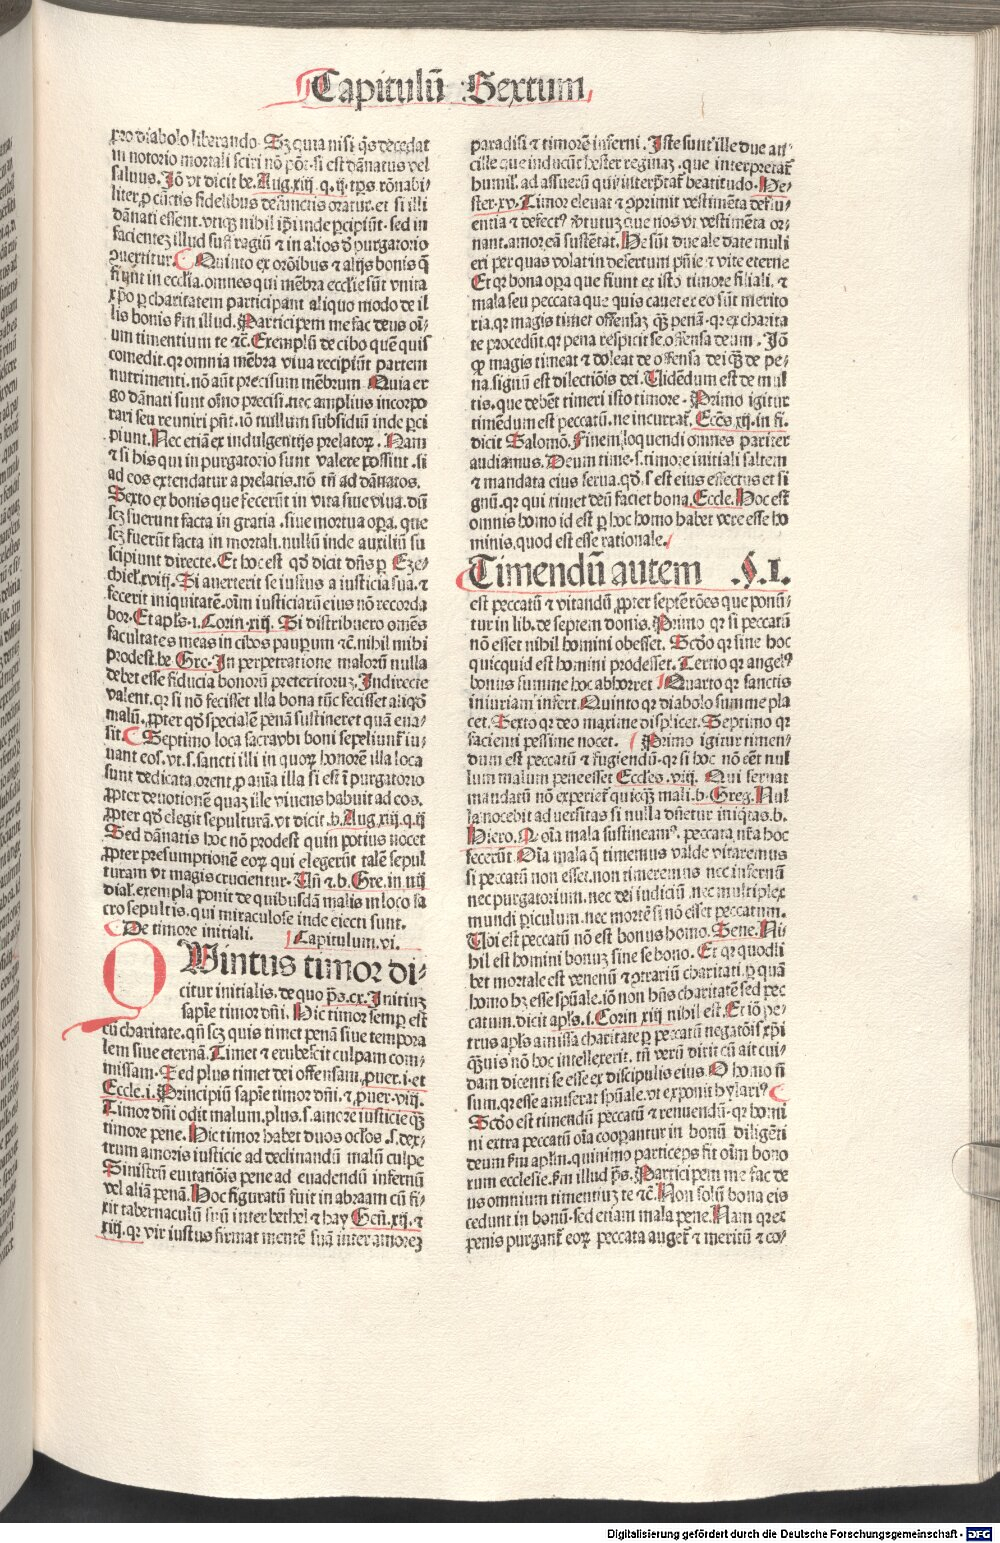 Capitulū Sextum
pro diabolo liberando. Sꝫ quia nisi q̄s decedat
in notorio mortali sciri nō pōt. si est dānatus vel
saluus. Jō vt dicit be. Aug. xiij. q. ij. tp̄s rōnabi-
liter, ꝓ cūctis fidelibus defunctis oratur. et si illi
dānati essent. vtiqꝫ nihil ip̄i inde ꝑcipiūt. sed in
facientez illud suffragiū ⁊ in alios ð purgatorio
ꝯuertitur. Quinto ex orōibus ⁊ alijs bonis q̄
fiunt in ecclīa. omnes qui mēbra ecclīe sūt vnita
xp̄o ꝑ charitatem participant aliquo modo de il
lis bonis fm illud. Participem me fac deus oī-
um timentium te ⁊c̄. Exemplū de cibo quē quis
comedit. qꝛ omnia mēbra viua recipiūt partem
nutrimenti. nō aūt precisum mēbrum. Quia er
go dānati sunt oīno precisi. nec amplius incorpo
rari seu reuniri pn̄t. iō nullum subsidiū inde ꝑci
piunt. Nec etiā ex indulgentijs prelatoꝝ. Nam
⁊ si his qui in purgatorio sunt valere possint. si
ad eos extendatur a prelatis. nō tn̄ ad dānatos.
Sexto ex bonis que fecerūt in vita siue viua. dū
scꝫ fuerunt facta in gratia. siue mortua oꝑa, que
scꝫ fuerūt facta in mortali. nullū inde auxiliū su
scipiunt directe. Et hoc est qð dicit dn̄s ꝑ Eze-
chiel. xviij. Si auerterit se iustus a iusticia sua. ⁊
fecerit iniquitatē. oīm iusticiarū eius nō recorda
bor. Et apl̄s. i. Corin. xiij. Si distribuero om̄es
facultates meas in cibos pauꝑum ⁊c̄. nihil mihi
prodest. be. Gre. In perpetratione malorū nulla
debet esse fiducia bonorū preteritoruꝫ. Indirecte
valent. qꝛ si nō fecisset illa bona tūc fecisset aliqð
malū, ꝓpter qð speciale penā sustineret quā eua-
sit. Septimo loca sacra vbi boni sepeliunt̄ iu-
uant eos. vt. s. sancti illi in quoꝝ honorē illa loca
sunt dedicata. orent, ꝓ aīa illa si est ī purgatorio
ꝓpter deuotionē quaꝫ ille viuens habuit ad eos.
ꝓpter qð elegit sepulturā. vt dicit. b. Aug. xiij. q. ij
Sed dānatis hoc nō prodest quin potius nocet
ꝓpter presumptionē eoꝝ qui elegerūt talē sepul
turam vt magis crucientur. Vn̄ ⁊. b. Gre. in iiij
dial. exempla ponit de quibusdā malis in loco sa
cro sepultis. qui miraculose inde eiecti sunt.
De timore initiali. Capitulum. vi.
QVintus timor di-
citur initialis. de quo p̄s. cx. Initiuꝫ
sapīe timor dn̄i. Hic timor semꝑ est
cū charitate. qn̄ scꝫ quis timet penā siue tempora
lem siue eternā. Timet ⁊ erubescit culpam com-
missam. Sed plus timet dei offensam. puer. i. et
Eccle. i. Principiū sapīe timor dn̄i. ⁊, puer. viij.
Timor dn̄i odit malum. plus. s. amore iusticie qꝫ
timore pene. Hic timor habet duos oclos. s. dex-
trum amoris iusticie ad declinandū malū culpe
Sinistrū euitatiōis pene ad euadendū infernū
vel aliā penā. Hoc figuratū fuit in abraam cū fi-
xit tabernaculū suū inter bethel ⁊ hay Gen̄. xij. ⁊
xiij. qꝛ vir iustus firmat mentē suā inter amoreꝫ
paradisi ⁊ timorē inferni. Iste sunt ille due an-
cille que inducūt hester reginaꝫ. que interpretat̄
humil̓. ad assuerū qui interp̄tat̄ beatitudo. He-
ster. xv. Timor eleuat ⁊ ꝯprimit vestimēta deflu-
entia ⁊ defect⁹ v̓tutuꝫ que nos vt vestimēta or-
nant. amor eā sustētat. He sūt due ale date muli
eri per quas volat in desertum pn̄ie ⁊ vite eterne
Et qꝛ bona oꝑa que fiunt ex isto timore filiali. ⁊
mala seu peccata que quis cauet ex eo sūt merito
ria. qꝛ magis timet offensaꝫ qꝫ penā. qꝛ ex charita
te procedūt. qꝛ pena respicit se. offensa deum. Jō
ꝙ magis timeat ⁊ doleat de offensa dei qꝫ de pe-
na. signū est dilectiōis dei. Uidēdum est de mul
tis. que debēt timeri isto timore. Primo igitur
timēdum est peccatū. ne incurrat̄. Eccēs. xij. in fi.
dicit Salomō. Finem loquendi omnes pariter
audiamus. Deum time. s. timore initiali saltem
⁊ mandata eius serua. qð. s. est eius effectus et si
gnū. qꝛ qui timet deū faciet bona. Eccle. Hoc est
omnis homo id est ꝑ hoc homo habet vere esse ho
minis. quod est esse rationale.
Timendū autem .§. I.
est peccatū ⁊ vitandū, ꝓpter septē rōes que ponū-
tur in lib. de septem donis. Primo qꝛ si peccatū
nō esset nihil homini obesset. Scðo qꝛ sine hoc
quicquid est homini prodesset. Tertio qꝛ angel⁹
bonus summe hoc abhorret. Quarto qꝛ sanctis
iniuriam infert. Quinto qꝛ diabolo summe pla
cet. Sexto qꝛ deo maxime displicet. Septimo qꝛ
facienti pessime nocet. Primo igitur timen-
dum est peccatū ⁊ fugiendū. qꝛ si hoc nō eēt nul
lum malum pene esset Eccles. viij. Qui seruat
mandatū nō experiet̄ quicqꝫ mali. b. Greg. Nul
la nocebit aduersitas si nulla dn̄etur iniq̄tas. b.
Hiero. Oīa mala sustineam⁹. peccata nr̄a hoc
fecerūt. Oīa mala q̄ timemus valde vitaremus
si peccatū non esset. non timeremus nec infernū
nec purgatorium. nec dei iudiciū. nec multiplex
mundi ꝑiculum. nec mortē si nō esset peccatum.
Ubi est peccatū nō est bonus homo. Sene. Ni-
hil est homini bonuꝫ sine se bono. Et qꝛ quodli
bet mortale est venenū ⁊ ꝯtrariū charitati. ꝑ quā
homo hꝫ esse spūale. iō non hn̄s charitatē sed pec
catum. dicit apl̄s. i. Corin. xiij nihil est. Et iō pe-
trus apl̄s amissa charitate ꝑ peccatū negatōis xp̄i
qꝫuis nō hoc intellexerit. tn̄ verū dixit cū ait cui-
dam dicenti se esse ex discipulis eius. O homo nō
sum. qꝛ esse amiserat spūale. vt exponit hylari⁹
Scðo est timendū peccatū ⁊ renuendū. qꝛ homi
ni extra peccatū oīa cooꝑantur in bonū diligēti
deum fm apl̄m. quinimo particeps fit oīm bono
rum ecclesie. fm illud p̄s. Participem me fac de
us omnium timentiuꝫ te ⁊c̄. Non solū bona eis
cedunt in bonū. sed etiam mala pene. Nam qꝛ ex
penis purgant̄ eoꝝ peccata auget̄ ⁊ meritū ⁊ co-
Digitalisierung gefördert durch die Deutsche Forschungsgemeinschaft - DFG